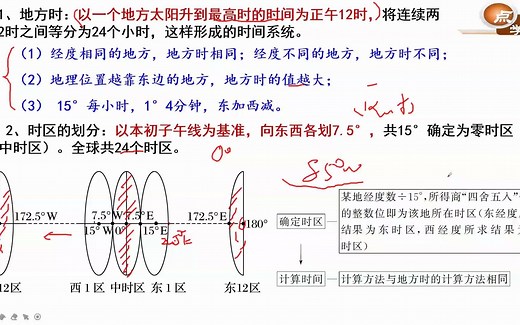 1、地方时：(以一个地方太阳升到最高时的时间为正午12时，) 将连续两
2时之间等分为24个小时，这样形成的时间系统。
（1）经度相同的地方，地方时相同；经度不同的地方，地方时不同；
（2）地理位置越靠东边的地方，地方时的值越大；
（3） 15°每小时，1°4分钟，东加西减。
2、时区的划分：以本初子午线为基准，向东西各划7.5°，共15°确定为零时区
中时区）。全球共24个时区。
0°
85°W
172.5°W 7.5°W 7.5°E 172.5°E 180°
15°W 0° 15°E
25°E
12区 西1区 中时区 东1区 东12区
某地经度数÷15°,所得商“四舍五入”
的整数位即为该地所在时区(东经度
结果为东时区，西经度所求结果
时区)
确定时区
计算时间 计算方法与地方时的计算方法相同
点
学